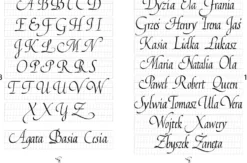 A B C C D D
E F G H I I
J K L M N
O P P R S
T T U U V W
X X Y Z
Agata Basia Cesia
Dyzia Ela Grania
Grześ Henry Irena Jaś
Kasia Lidka Łukasz
Maria Natalia Ola
Paweł Robert Queen
Sylwia Tomasz Ula Vera
Wojtek Xawery
Zbyszek Żaneta